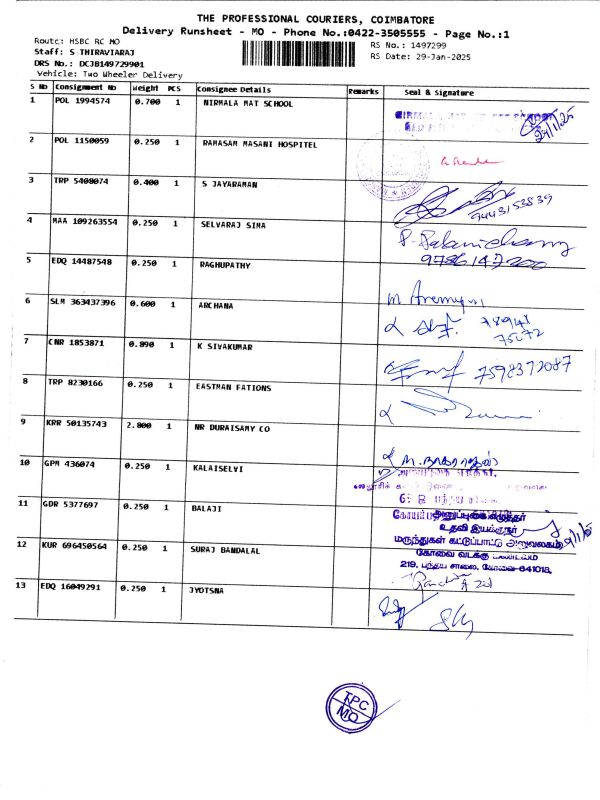 THE PROFESSIONAL COURIERS, COIMBATORE
Delivery Runsheet - MO - Phone No.:0422-3505555 - Page No.:1
Route: HSBC RC MO
Staff: S THIRAVIARAJ
DRS No.: DCJB149729901
Vehicle: Two Wheeler Delivery
RS No.: 1497299
RS Date: 29-Jan-2025
S No Consignment No Weight PCS Consignee Details Remarks Seal & Signature
1 POL 1994574 0.700 1 NIRMALA MAT SCHOOL
29/1/25
2 POL 1150059 0.250 1 RAMASAM MASANI HOSPITEL
3 TRP 5408074 0.400 1 S JAYARAMAN
9443153839
4 MAA 109263554 0.250 1 SELVARAJ SIMA
P. Palanichamy
9786147200
5 EDQ 14487548 0.250 1 RAGHUPATHY
6 SLM 363437396 0.600 1 ARCHANA
78948
75072
7 CNR 1853871 0.890 1 K SIVAKUMAR
7598372087
8 TRP 8230166 0.250 1 EASTMAN FATIONS
9 KRR 50135743 2.800 1 NR DURAISAMY CO
10 GPM 436074 0.250 1 KALAISELVI
11 GDR 5377697 0.250 1 BALAJI
உதவி இயக்குநர்
மருந்துகள் கட்டுப்பாட்டு அலுவலகம்
12 KUR 696450564 0.250 1 SURAJ BANDALAL
கோவை வடக்கு மண்டலம்
219, பந்தய சாலை, கோவை-641018.
13 EDQ 16049291 0.250 1 JYOTSNA
TPC
MO